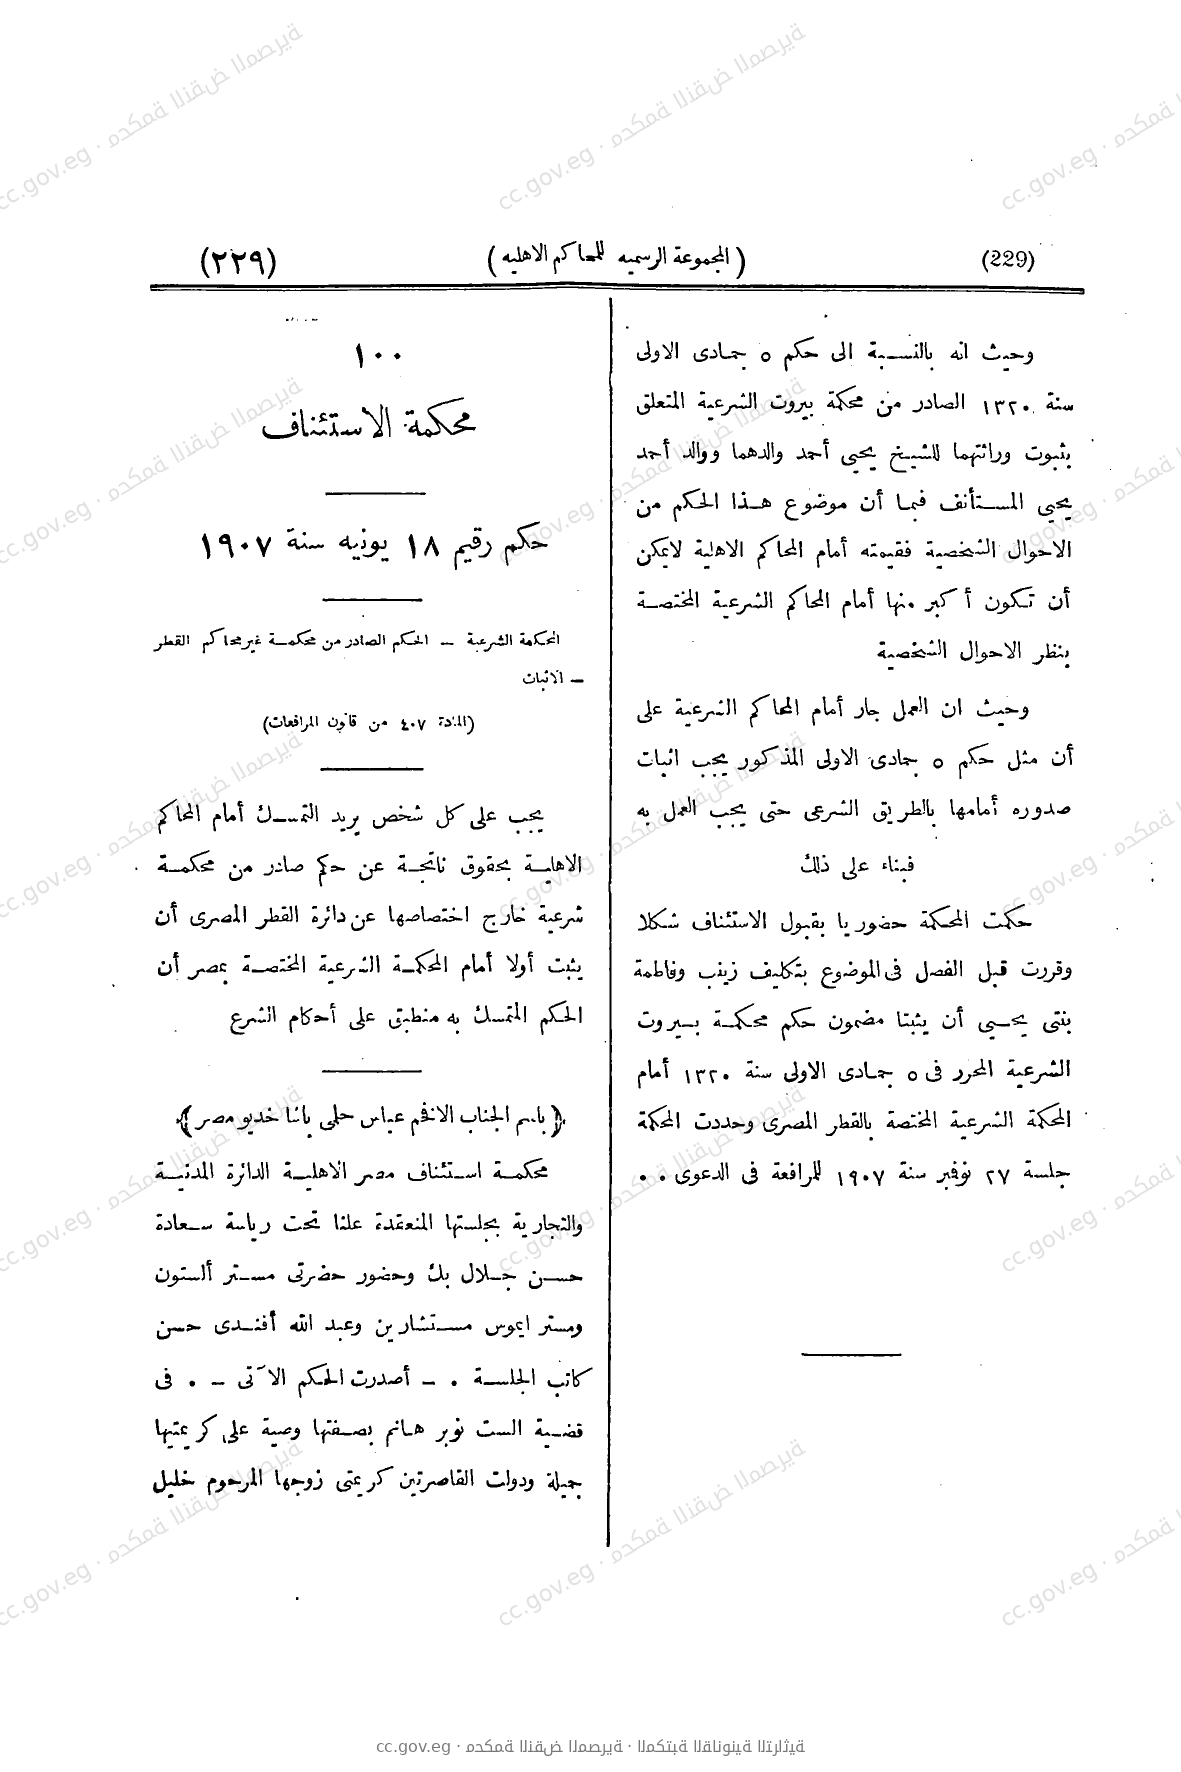 (229) (المجموعة الرسميه للمحاكم الاهليه) (٢٢٩)
وحيث انه بالنسبة الى حكم ٥ جمادى الاولى
سنة ١٣٢٠ الصادر من محكمة بيروت الشرعية المتعلق
بثبوت وراثتهما للشيخ يحيى أحمد والدهما ووالد أحمد
يحيى المستأنف فبما أن موضوع هذا الحكم من
الاحوال الشخصية فقيمته أمام المحاكم الاهلية لايمكن
أن تكون أكبر منها أمام المحاكم الشرعية المختصة
بنظر الاحوال الشخصية
وحيث ان العمل جار أمام المحاكم الشرعية على
أن مثل حكم ٥ جمادى الاولى المذكور يجب اثبات
صدوره أمامها بالطريق الشرعى حتى يجب العمل به
فبناء على ذلك
حكمت المحكمة حضوريا بقبول الاستئناف شكلا
وقررت قبل الفصل فى الموضوع بتكليف زينب وفاطمة
بنتى يحيى أن يثبتا مضمون حكم محكمة بيروت
الشرعية المحرر فى ٥ جمادى الاولى سنة ١٣٢٠ أمام
المحكمة الشرعية المختصة بالقطر المصرى وحددت المحكمة
جلسة ٢٧ نوفمبر سنة ١٩٠٧ للمرافعة فى الدعوى . .
١٠٠
محكمة الاستئناف
حكم رقيم ١٨ يونيه سنة ١٩٠٧
المحكمة الشرعية — الحكم الصادر من محكمة غير محاكم القطر
— الاثبات
(المادة ٤٠٧ من قانون المرافعات)
يجب على كل شخص يريد التمسك أمام المحاكم
الاهلية بحقوق ناتجة عن حكم صادر من محكمة
شرعية خارج اختصاصها عن دائرة القطر المصرى أن
يثبت أولا أمام المحكمة الشرعية المختصة بمصر أن
الحكم المتمسك به منطبق على أحكام الشرع
(باسم الجناب الافخم عباس حلمى باشا خديو مصر)
محكمة استئناف مصر الاهلية الدائرة المدنية
والتجارية بجلستها المنعقدة علنا تحت رياسة سعادة
حسن جلال بك وحضور حضرتى مستر ألستون
ومستر ايموس مستشارين وعبد الله أفندى حسن
كاتب الجلسة . — أصدرت الحكم الآتى — . فى
قضية الست نوبر هانم بصفتها وصية على كريمتيها
جميلة ودولت القاصرتين كريمتى زوجها المرحوم خليل
cc.gov.eg · محكمة النقض المصرية · المكتبة القانونية التراثية